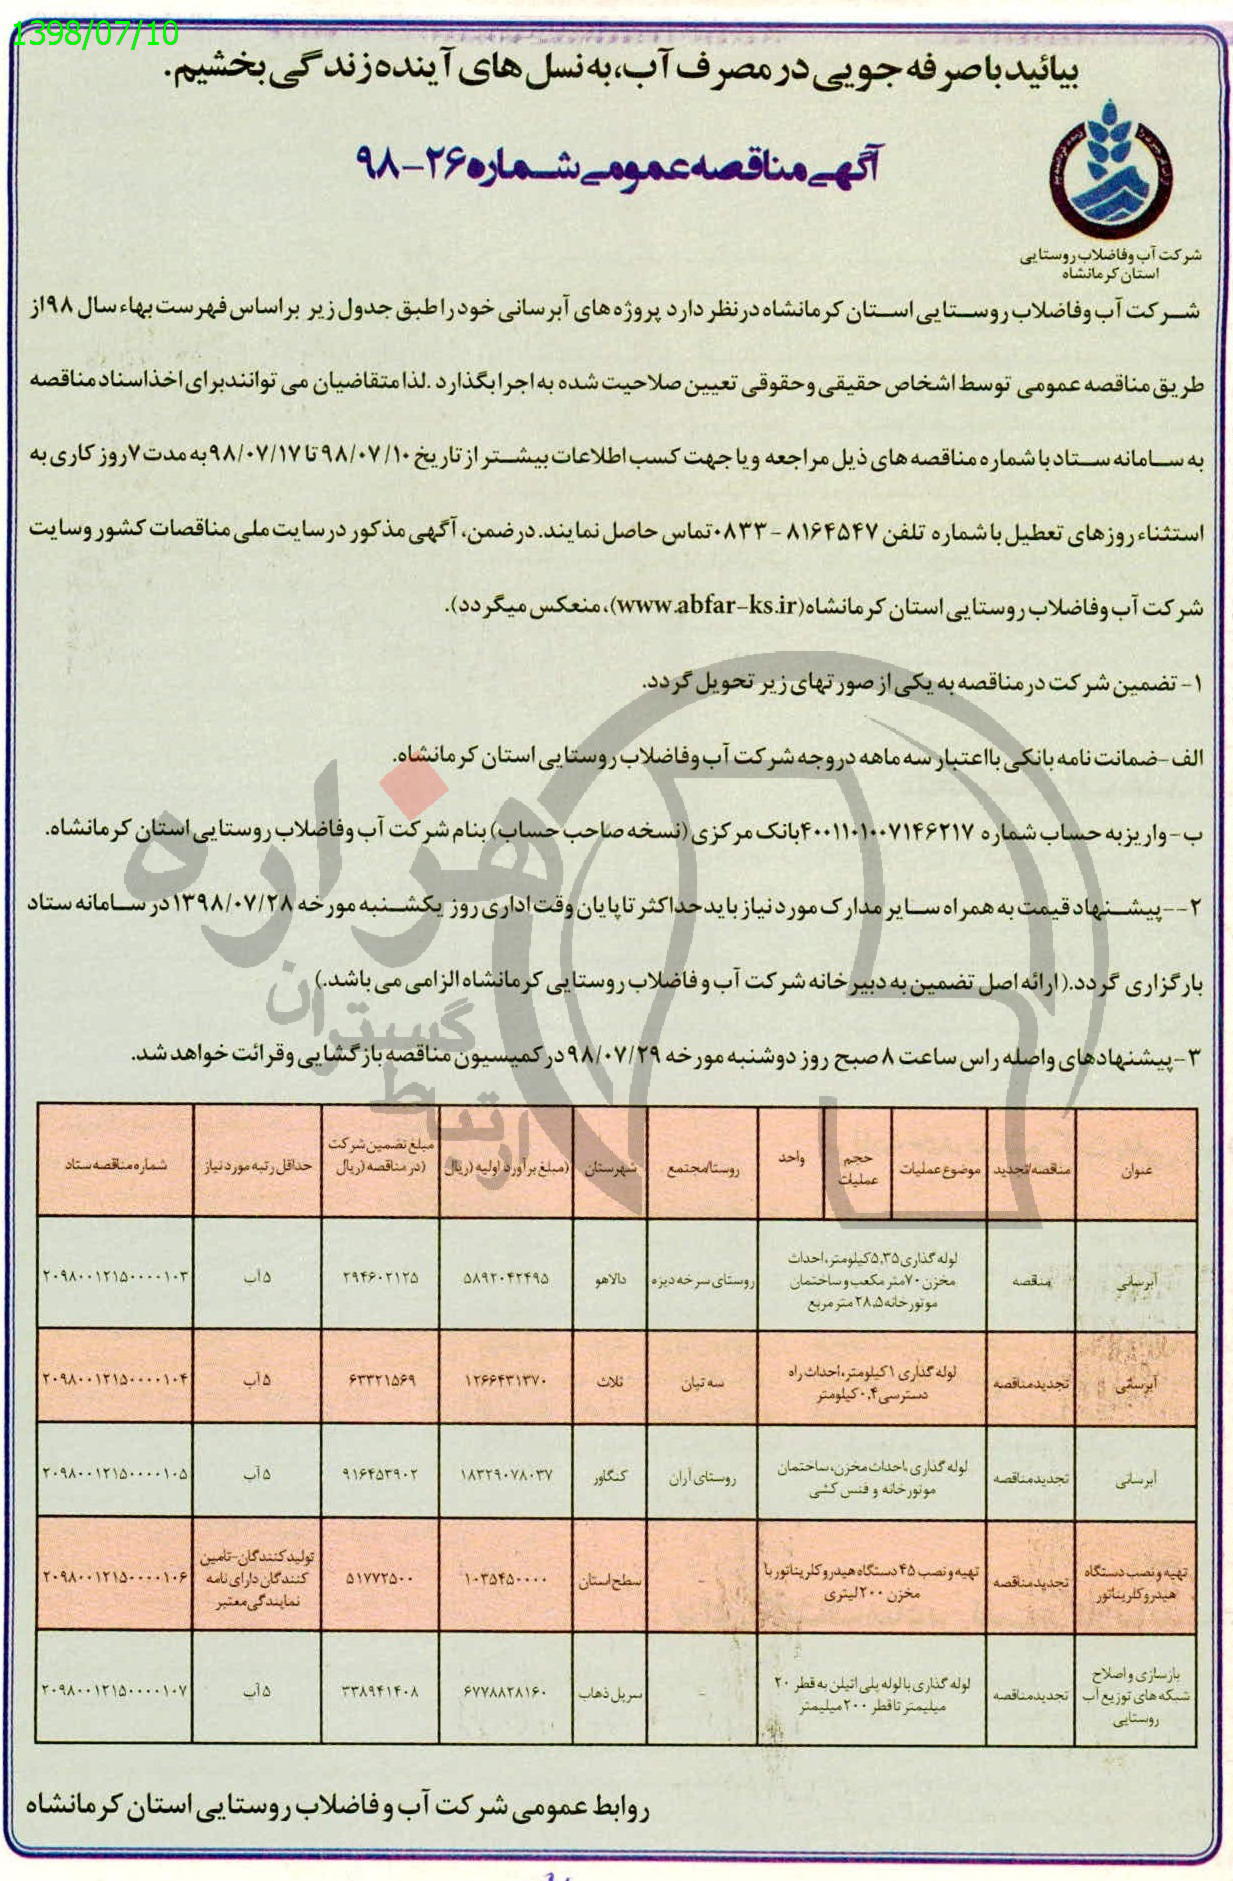 1398/07/10
بیائید با صرفه جویی در مصرف آب، به نسل های آینده زندگی بخشیم.
آگهی مناقصه عمومی شماره ۲۶-۹۸
شرکت آب وفاضلاب روستایی
استان کرمانشاه
شرکت آب وفاضلاب روستایی استان کرمانشاه درنظر دارد پروژه های آبرسانی خود را طبق جدول زیر براساس فهرست بهاء سال ۹۸ از
طریق مناقصه عمومی توسط اشخاص حقیقی وحقوقی تعیین صلاحیت شده به اجرا بگذارد .لذا متقاضیان می توانند برای اخذ اسناد مناقصه
به سامانه ستاد با شماره مناقصه های ذیل مراجعه و یا جهت کسب اطلاعات بیشتر از تاریخ ۹۸/۰۷/۱۰ تا ۹۸/۰۷/۱۷ به مدت ۷ روز کاری به
استثناء روزهای تعطیل با شماره تلفن ۸۱۶۴۵۴۷ - ۰۸۳۳ تماس حاصل نمایند. درضمن، آگهی مذکور در سایت ملی مناقصات کشور وسایت
شرکت آب وفاضلاب روستایی استان کرمانشاه(www.abfar-ks.ir)، منعکس میگردد).
۱- تضمین شرکت در مناقصه به یکی از صورتهای زیر تحویل گردد.
الف -ضمانت نامه بانکی بااعتبار سه ماهه دروجه شرکت آب وفاضلاب روستایی استان کرمانشاه.
ب- واریز به حساب شماره ۴۰۰۱۱۰۱۰۰۷۱۴۶۲۱۷ بانک مرکزی (نسخه صاحب حساب) بنام شرکت آب وفاضلاب روستایی استان کرمانشاه.
۲--پیشنهاد قیمت به همراه سایر مدارک مورد نیاز باید حداکثر تا پایان وقت اداری روز یکشنبه مورخه ۱۳۹۸/۰۷/۲۸ در سامانه ستاد
بارگزاری گردد.( ارائه اصل تضمین به دبیرخانه شرکت آب و فاضلاب روستایی کرمانشاه الزامی می باشد.)
۳-پیشنهادهای واصله راس ساعت ۸ صبح روز دوشنبه مورخه ۹۸/۰۷/۲۹ در کمیسیون مناقصه بازگشایی وقرائت خواهد شد.
هزاره
گستران
ارتباط
عنوان مناقصه/تجدید موضوع عملیات حجم عملیات واحد روستا/مجتمع شهرستان (مبلغ برآورد اولیه (ریال مبلغ تضمین شرکت (در مناقصه (ریال حداقل رتبه مورد نیاز شماره مناقصه ستاد
آبرسانی مناقصه لوله گذاری ۵,۳۵کیلومتر،احداث مخزن ۷۰متر مکعب و ساختمان موتورخانه ۲۸,۵ متر مربع روستای سرخه دیزه دالاهو ۵۸۹۲۰۴۲۴۹۵ ۲۹۴۶۰۲۱۲۵ ۵ آب ۲۰۹۸۰۰۱۲۱۵۰۰۰۰۱۰۳
آبرسانی تجدیدمناقصه لوله گذاری ۱کیلومتر،احداث راه دسترسی ۰,۴کیلومتر سه تپان ثلاث ۱۲۶۶۴۳۱۳۷۰ ۶۳۳۲۱۵۶۹ ۵ آب ۲۰۹۸۰۰۱۲۱۵۰۰۰۰۱۰۴
آبرسانی تجدیدمناقصه لوله گذاری ،احداث مخزن، ساختمان موتورخانه و فنس کشی روستای آران کنگاور ۱۸۳۲۹۰۷۸۰۳۷ ۹۱۶۴۵۳۹۰۲ ۵ آب ۲۰۹۸۰۰۱۲۱۵۰۰۰۰۱۰۵
تهیه ونصب دستگاه هیدروکلریناتور تجدیدمناقصه تهیه و نصب ۴۵ دستگاه هیدروکلریناتور با مخزن ۲۰۰ لیتری - سطح استان ۱۰۳۵۴۵۰۰۰۰ ۵۱۷۷۲۵۰۰ تولیدکنندگان-تامین کنندگان دارای نامه نمایندگی معتبر ۲۰۹۸۰۰۱۲۱۵۰۰۰۰۱۰۶
بازسازی و اصلاح شبکه های توزیع آب روستایی تجدیدمناقصه لوله گذاری بالوله پلی اتیلن به قطر ۲۰ میلیمتر تا قطر ۲۰۰ میلیمتر - سرپل ذهاب ۶۷۷۸۸۲۸۱۶۰ ۳۳۸۹۴۱۴۰۸ ۵ آب ۲۰۹۸۰۰۱۲۱۵۰۰۰۰۱۰۷
روابط عمومی شرکت آب و فاضلاب روستایی استان کرمانشاه